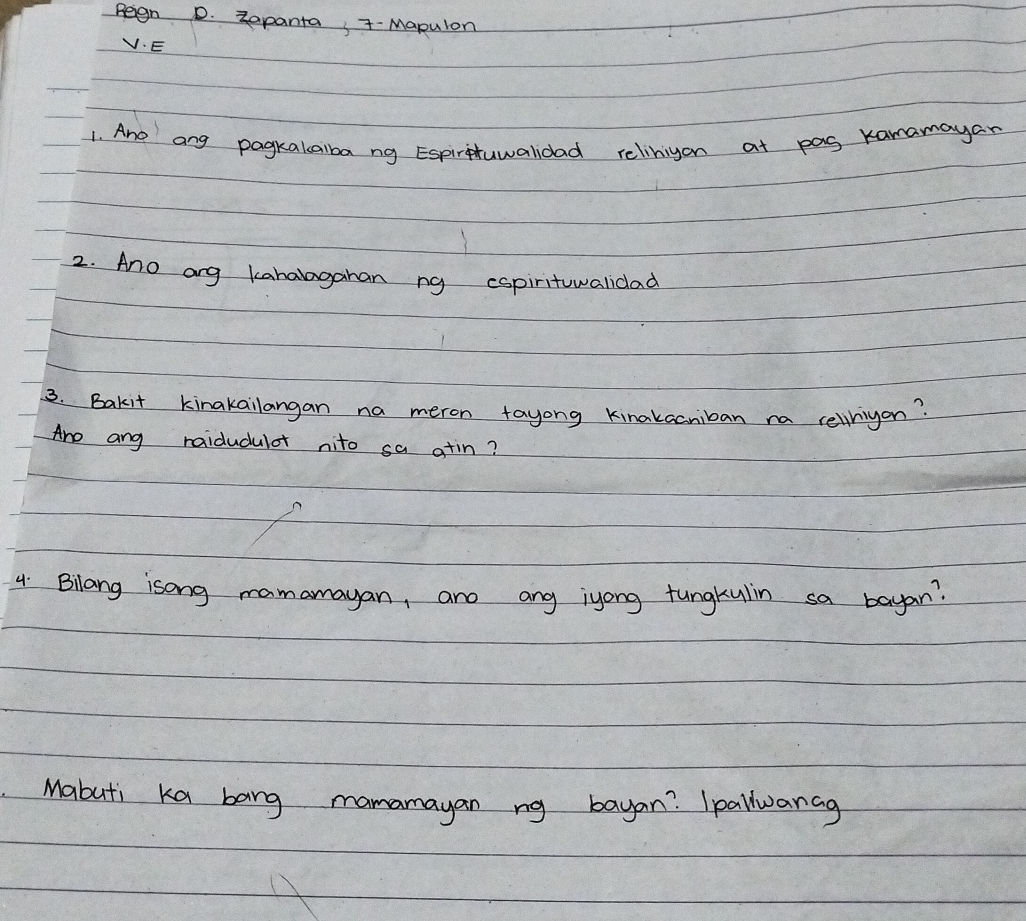 Reign D. Zapanta, 7-Mapulon
V.E
1. Ano ang pagkakaiba ng Espirituwalidad relihiyon at pag kamamayan
2. Ano ang kahalagahan ng espirituwalidad
3. Bakit kinakailangan na meron tayong kinakaaniban na relihiyon?
Ano ang naidudulot nito sa atin?
4. Bilang isang mamamayan, ano ang iyong tungkulin sa bayan?
. Mabuti ka bang mamamayan ng bayan? Ipaliwanag